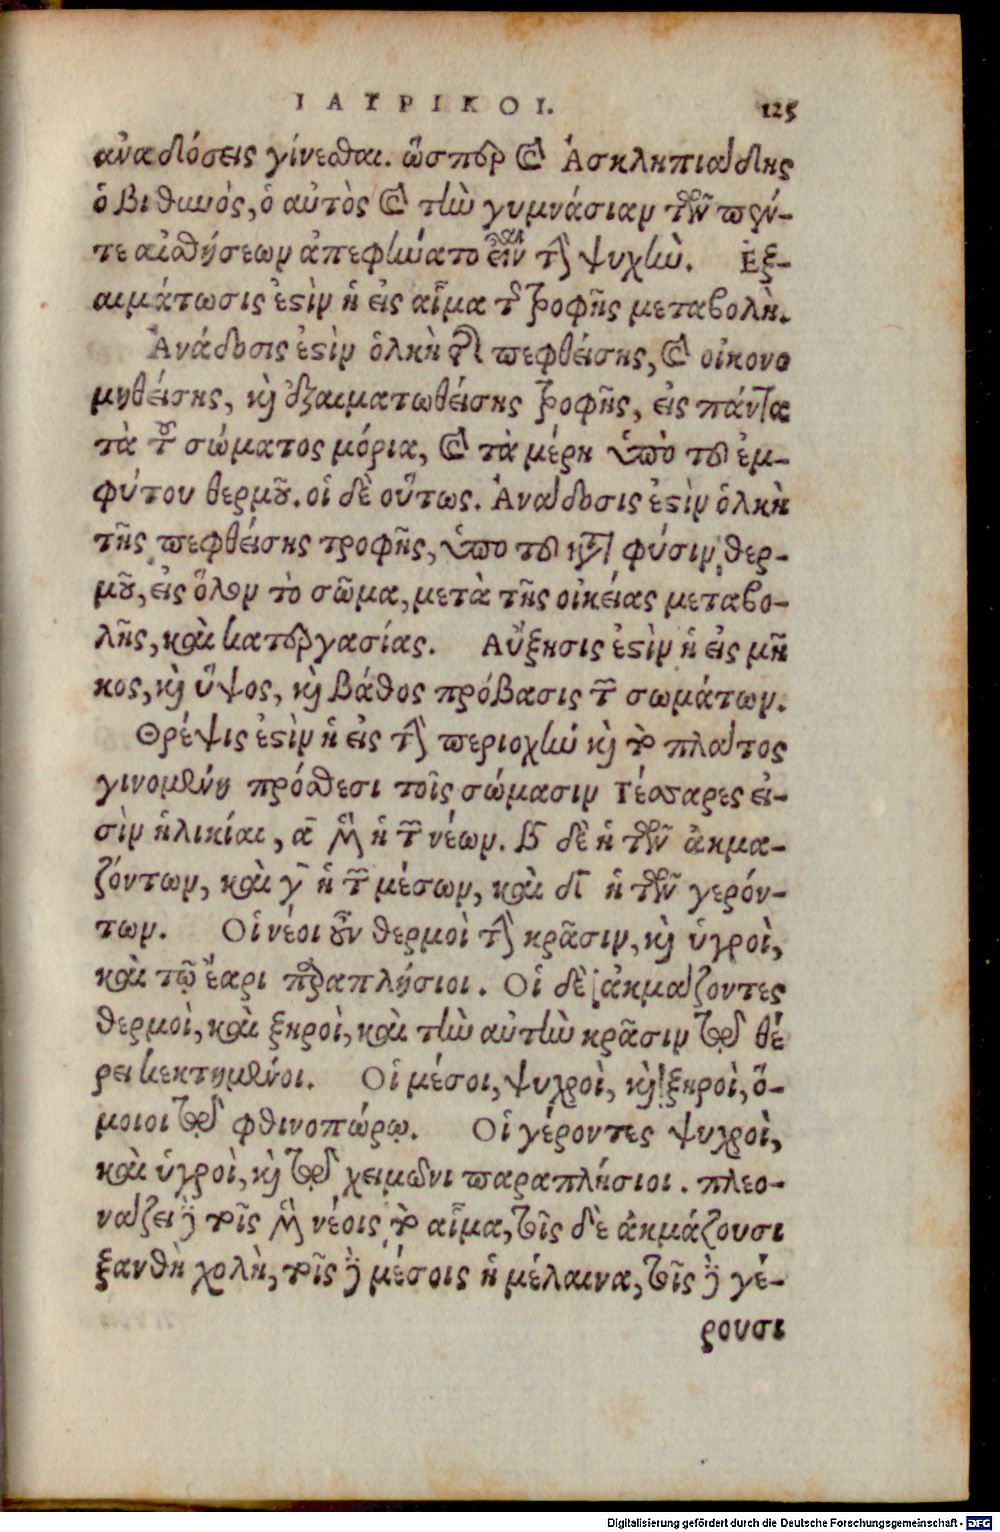 ΙΑΤΡΙΚΟΙ. 125
ἀναδόσεις γίνεσθαι. ὥσπερ καὶ Ἀσκληπιάδης
ὁ βιθυνὸς, ὁ αὐτὸς καὶ τὴν γυμνάσιαν τῶν πέν-
τε αἰσθήσεων ἀπεφήνατο εἶναι τὴν ψυχὴν. Ἐξ-
αιμάτωσις ἐστὶν ἡ εἰς αἷμα τῆς τροφῆς μεταβολὴ.
Ἀνάδοσις ἐστὶν ὁλκὴ τῆς πεφθείσης, καὶ οἰκονο
μηθείσης, καὶ ἐξαιματωθείσης τροφῆς, εἰς πάντα
τὰ τοῦ σώματος μόρια, καὶ τὰ μέρη ὑπὸ τοῦ ἐμ-
φύτου θερμοῦ. οἱ δὲ οὕτως. Ἀνάδοσις ἐστὶν ὁλκὴ
τῆς πεφθείσης τροφῆς, ὑπο τοῦ κατὰ φύσιν θερ-
μοῦ, εἰς ὅλον τὸ σῶμα, μετὰ τῆς οἰκείας μεταβο-
λῆς, καὶ κατεργασίας. Αὔξησις ἐστὶν ἡ εἰς μῆ
κος, καὶ ὕψος, καὶ βάθος πρόβασις τῶν σωμάτων.
Θρέψις ἐστὶν ἡ εἰς τὴν περιοχὴν καὶ τὸ πλάτος
γινομένη πρόσθεσι τοῖς σώμασιν Τέσσαρες εἰ-
σὶν ἡλικίαι, α μὲν ἡ τῶν νέων. β δὲ ἡ τῶν ἀκμα-
ζόντων, καὶ γ ἡ τῶν μέσων, καὶ δ ἡ τῶν γερόν-
των. Οἱ νέοι οὖν θερμοὶ τὴν κρᾶσιν, καὶ ὑγροὶ,
καὶ τῷ ἔαρι παραπλήσιοι. Οἱ δὲ ἀκμάζοντες
θερμοὶ, καὶ ξηροὶ, καὶ τὴν αὐτὴν κρᾶσιν τῷ θέ
ρει κεκτημένοι. Οἱ μέσοι, ψυχροὶ, καὶ ξηροὶ, ὅ-
μοιοι τῷ φθινοπώρῳ. Οἱ γέροντες ψυχροὶ,
καὶ ὑγροὶ, καὶ τῷ χειμῶνι παραπλήσιοι. πλεο-
νάζει δὲ τοῖς μὲν νέοις τὸ αἷμα, τοῖς δὲ ἀκμάζουσι
ξανθὴ χολὴ, τοῖς δὲ μέσοις ἡ μέλαινα, τοῖς δὲ γέ-
ρουσι
Digitalisierung gefördert durch die Deutsche Forschungsgemeinschaft - DFG